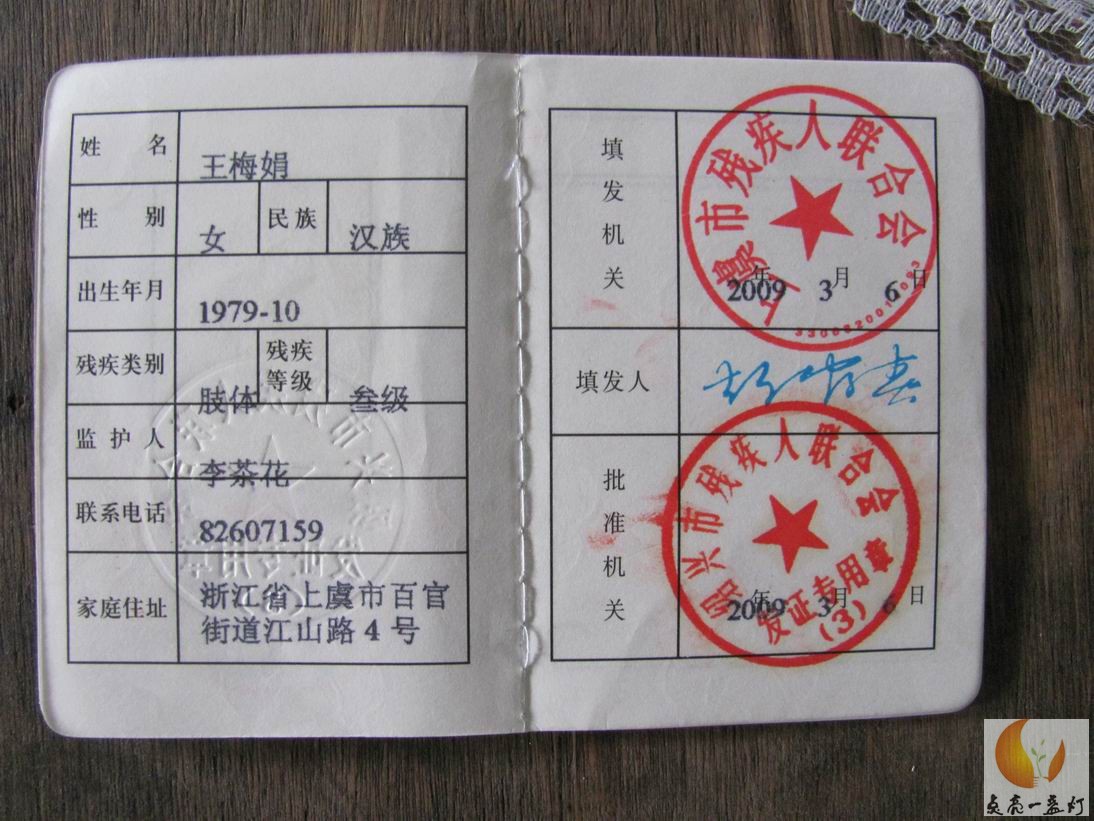 姓 名 王梅娟
性 别 女 民族 汉族
出生年月 1979-10
残疾类别 肢体 残疾等级 叁级
监护人 李茶花
联系电话 82607159
家庭住址 浙江省上虞市百官
街道江山路4号
填发机关
上虞市残疾人联合会
2009年3月6日
填发人
批准机关
绍兴市残疾人联合会
发证专用章
(3)
2009年3月6日
点亮一盏灯